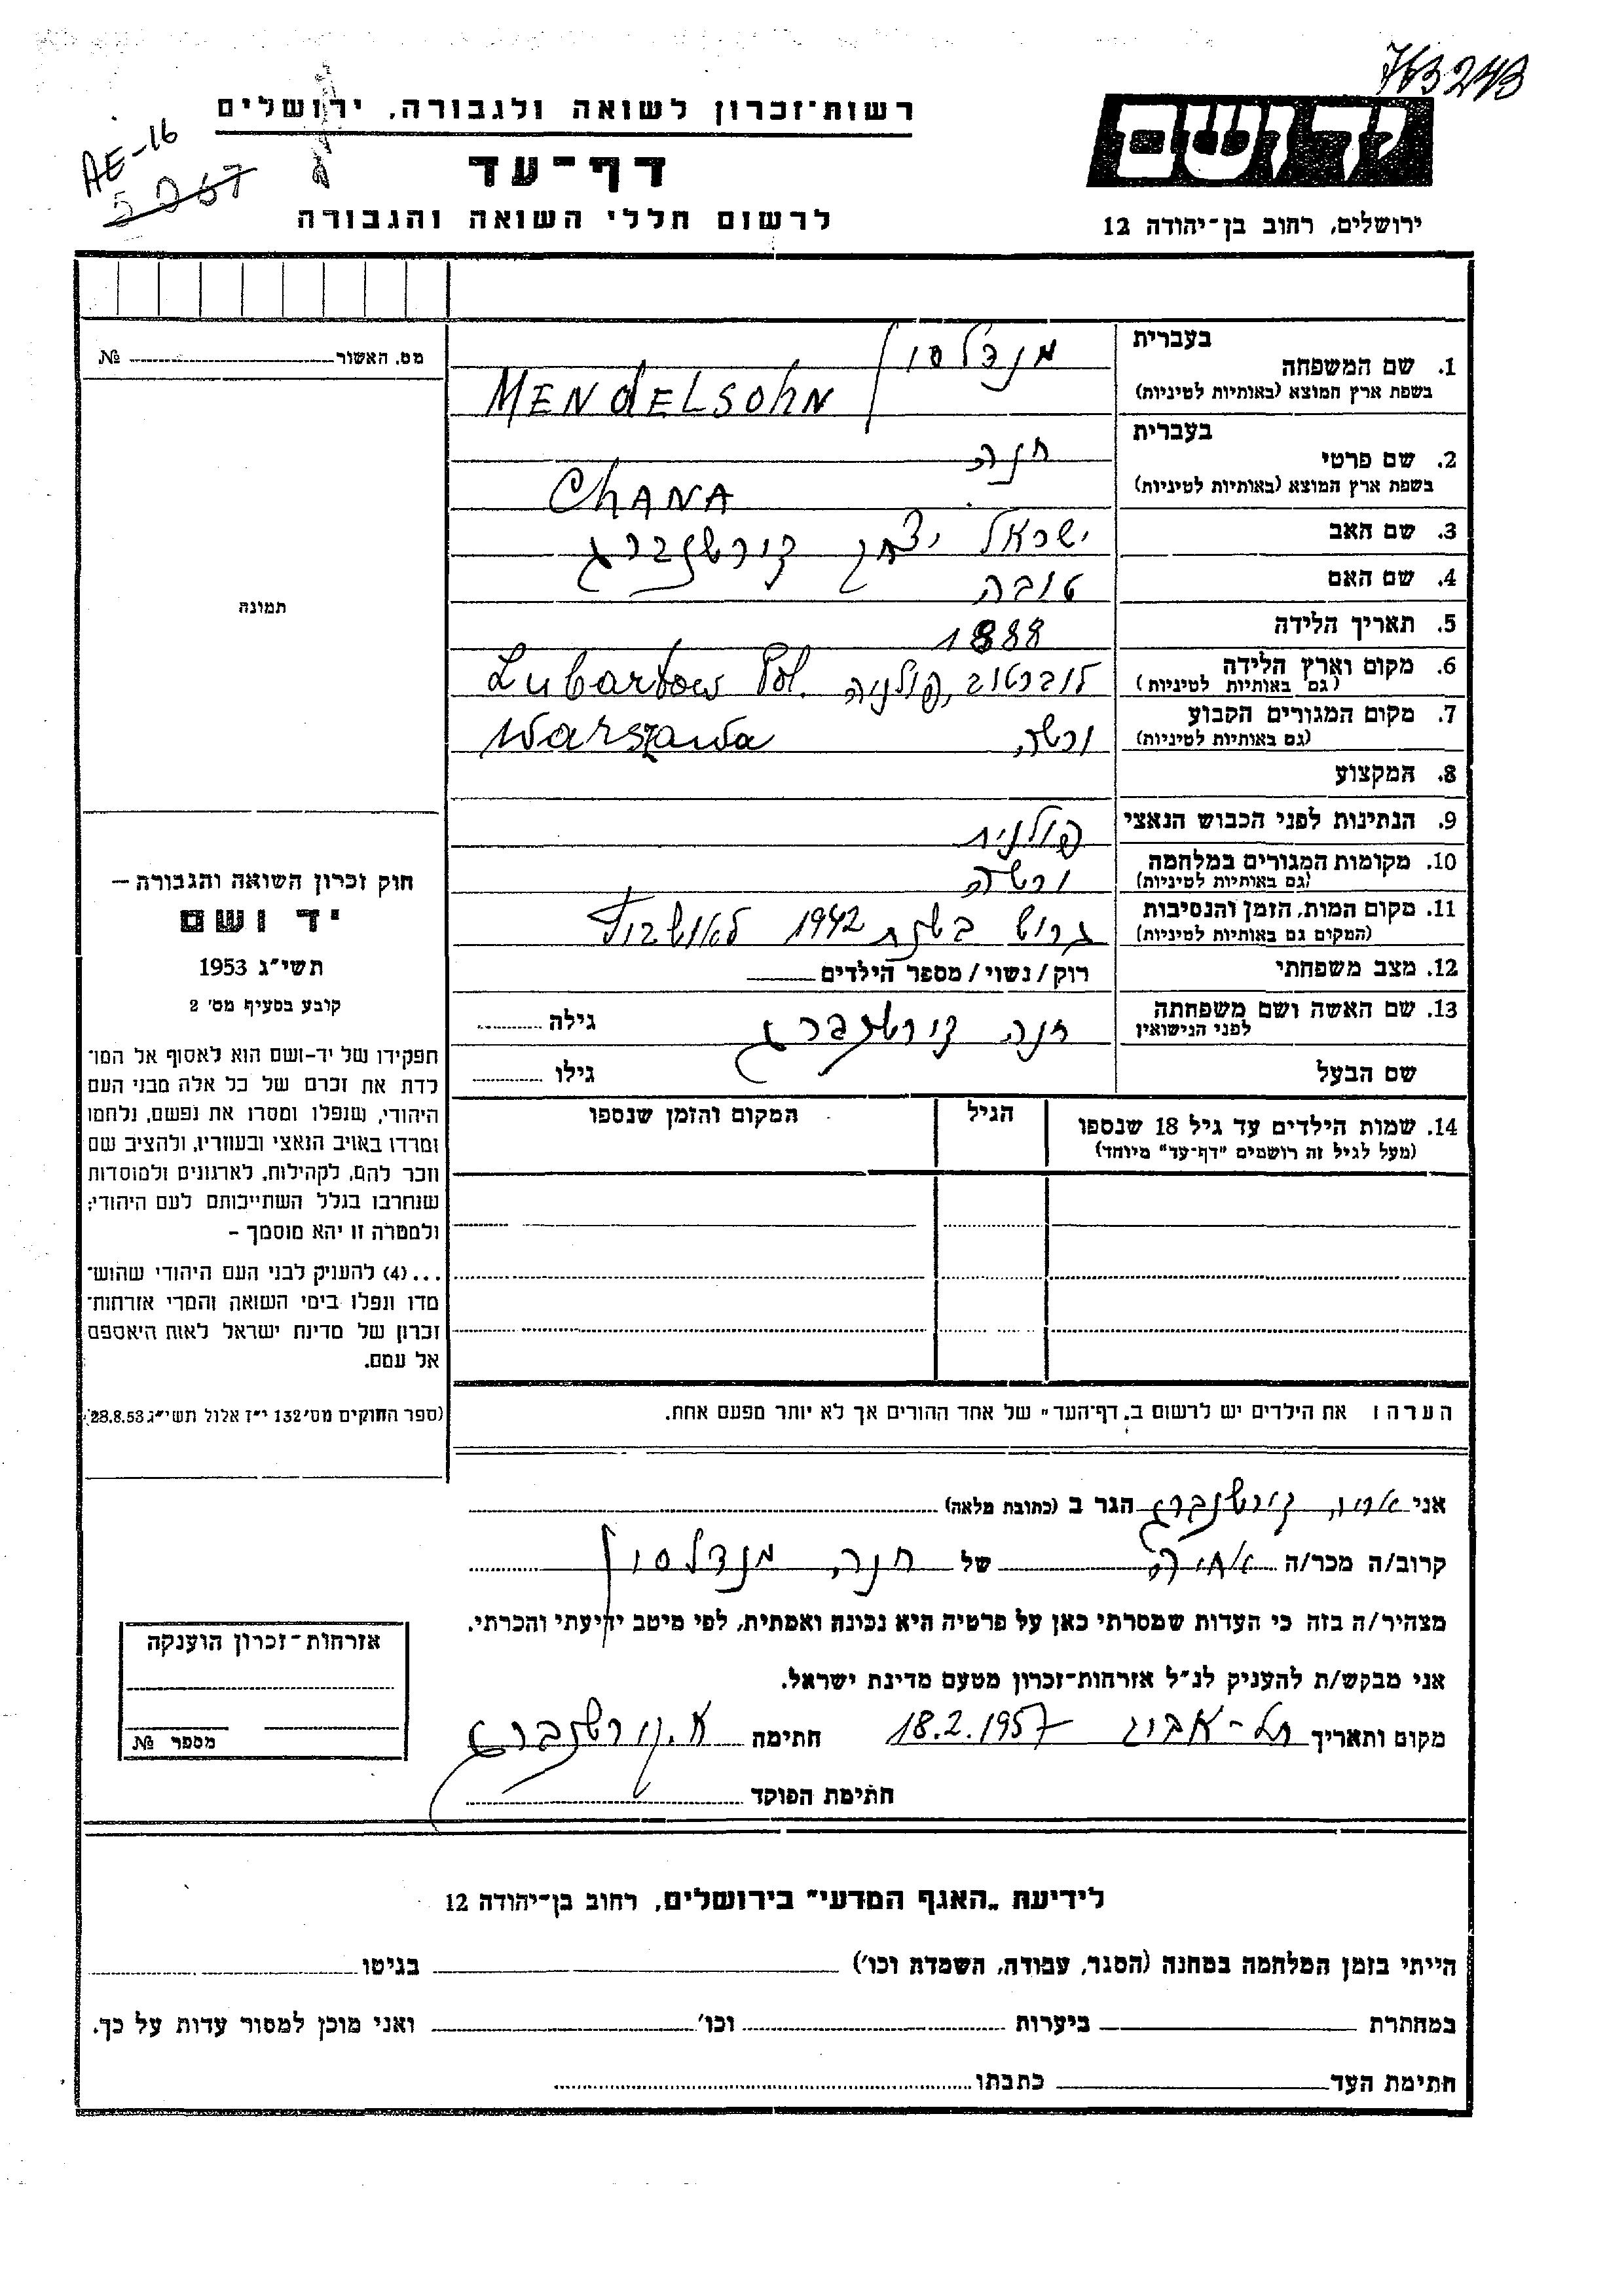 763243
AE-16
5067
רשות־זכרון לשואה ולגבורה, ירושלים
דף־עד
לרשום חללי השואה והגבורה
ידושם
ירושלים, רחוב בן־יהודה 12
מס. האשור № 
תמונה
בעברית
1. שם המשפחה מנדלסון
בשפת ארץ המוצא (באותיות לטיניות) MENDELSOHN
בעברית
2. שם פרטי חנה
בשפת ארץ המוצא (באותיות לטיניות) CHANA
3. שם האב ישראל יצחק קירשנברג
4. שם האם טובה
5. תאריך הלידה 1888
6. מקום וארץ הלידה לוברטוב, פולניה Lubartow Pol.
(גם באותיות לטיניות)
7. מקום המגורים הקבוע ורשה Warszawa
(גם באותיות לטיניות)
8. המקצוע
9. הנתינות לפני הכבוש הנאצי פולנית
10. מקומות המגורים במלחמה ורשה
(גם באותיות לטיניות)
11. מקום המות, הזמן והנסיבות גרוש בשנת 1942
(המקום גם באותיות לטיניות)
12. מצב משפחתי רוק/נשוי/מספר הילדים
13. שם האשה ושם משפחתה חנה קירשנברג גילה
לפני הנישואין
שם הבעל גילו
14. שמות הילדים עד גיל 18 שנספו הגיל המקום והזמן שנספו
(מעל לגיל זה רושמים "דף־עד" מיוחד)
הערה: את הילדים יש לרשום ב„דף־העד" של אחד ההורים אך לא יותר מפעם אחת.
חוק זכרון השואה והגבורה —
יד ושם
תשי"ג 1953
קובע בסעיף מס' 2
תפקידו של יד-ושם הוא לאסוף אל המו־
לדת את זכרם של כל אלה מבני העם
היהודי, שנפלו ומסרו את נפשם, נלחמו
ומרדו באויב הנאצי ובעוזריו, ולהציב שם
וזכר להם, לקהילות, לארגונים ולמוסדות
שנחרבו בגלל השתייכותם לעם היהודי;
ולמטרה זו יהא מוסמך –
...(4) להעניק לבני העם היהודי שהוש־
מדו ונפלו בימי השואה והמרי אזרחות־
זכרון של מדינת ישראל לאות היאספם
אל עמם.
(ספר החוקים מס' 132 י"ז אלול תשי"ג 28.8.53)
אני קירשנברג הגר ב (כתובת מלאה)
קרוב/ה מכר/ה של חנה מנדלסון
מצהיר/ה בזה כי העדות שמסרתי כאן על פרטיה היא נכונה ואמתית, לפי מיטב ידיעתי והכרתי.
אני מבקש/ת להעניק לנ"ל אזרחות־זכרון מטעם מדינת ישראל.
מקום ותאריך תל-אביב 18.2.1957 חתימה א. קירשנברג
חתימת הפוקד
אזרחות־זכרון הוענקה
מספר №
לידיעת „האגף המדעי" בירושלים, רחוב בן־יהודה 12
הייתי בזמן המלחמה במחנה (הסגר, עבודה, השמדה וכו') בגיטו
במחתרת ביערות וכו' ואני מוכן למסור עדות על כך.
חתימת העד כתבתו